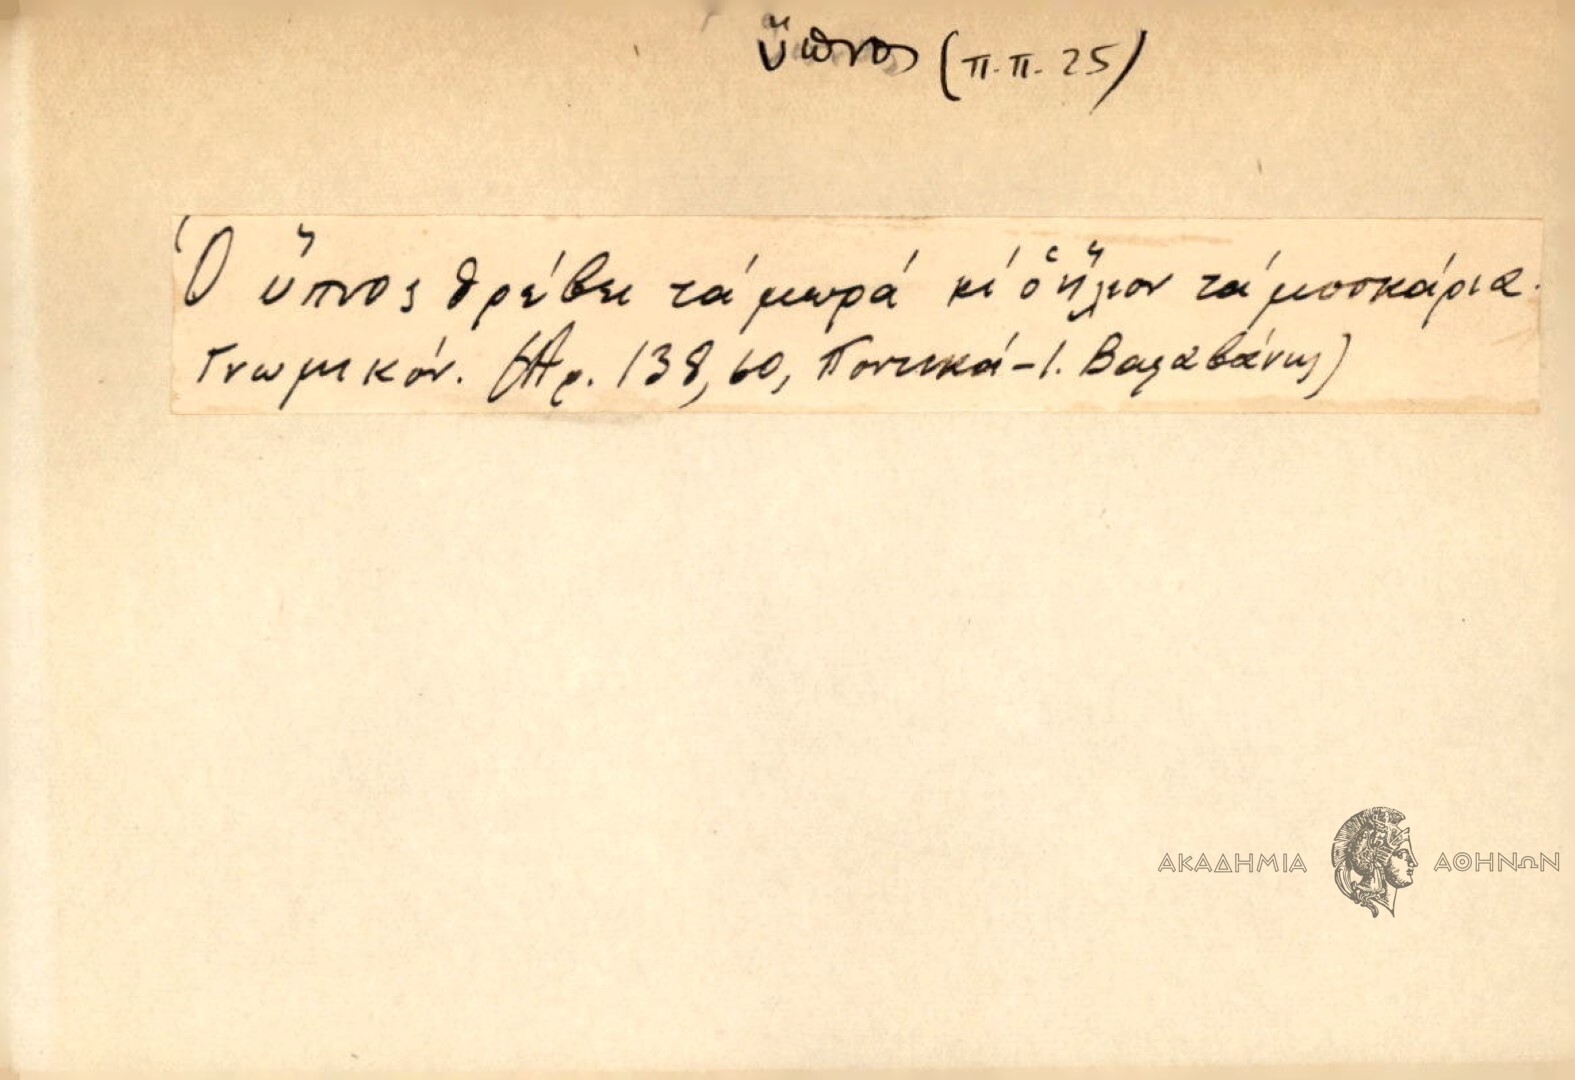 ὕπνος (π.π. 25)
Ὁ ὕπνος θρέβει τά μωρά κι ὁ ἥλιον τά μοσκάρια.
Γνωμικόν. (Αρ. 138, 60, Ποντικά - Ι. Βαλαβάνης)
ΑΚΑΔΗΜΙΑ ΑΘΗΝΩΝ